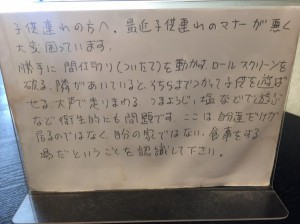 子供連れの方へ。最近子供連れのマナーが悪く
大変困っています。
勝手に間仕切り(ついたて)を動かす、ロールスクリーンを
破る、隣があいていると、そちらまでつかって子供を遊ば
せる、大声で走りまわる、つまようじ・塩などで遊ぶ
など衛生的にも問題です。ここは自分達だけが
居るのではなく、自分の家ではない、食事をする
場だということを認識して下さい。